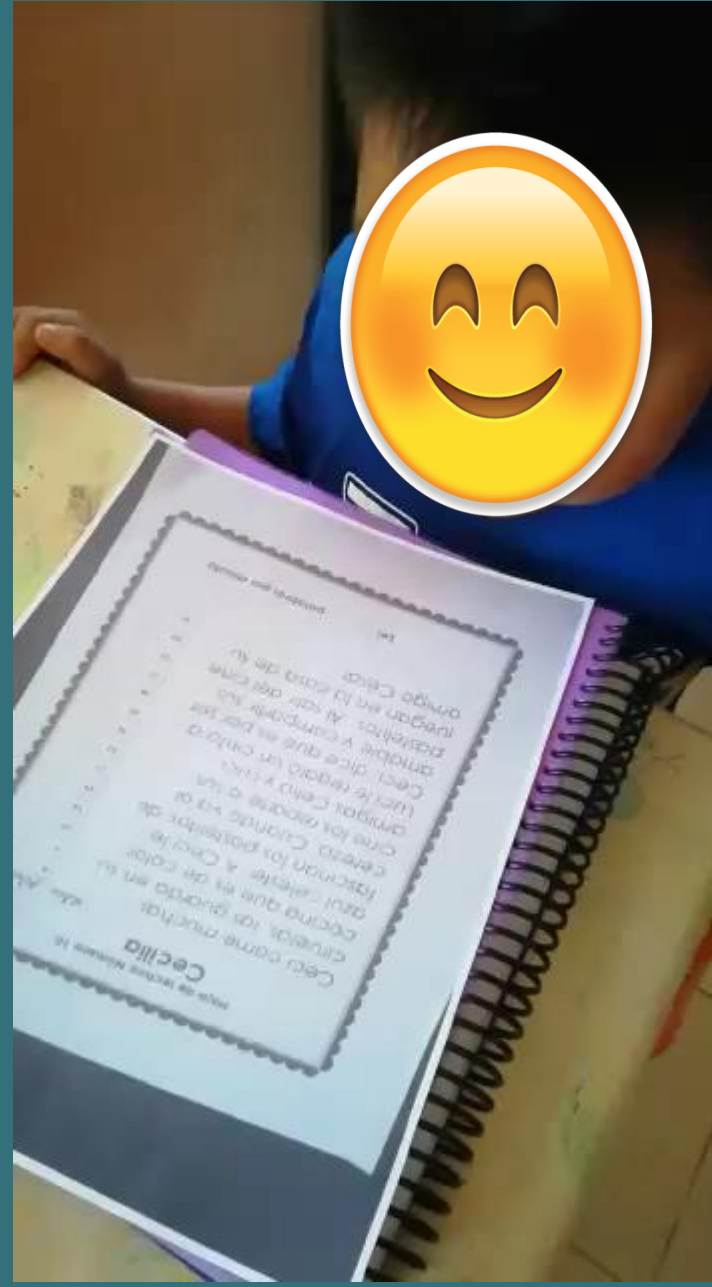 Hoja de lectura Número 16
Cecilia
Ceci come muchas
ciruelas, las guarda en su
cocina que es de color
azul celeste. A Ceci le
fascinan los pastelitos de
cereza. Cuando va al
cine los reparte a sus
amigas Celia y Luci.
Luci le regaló un cintro a
Ceci, dice que es por ser
amable y compartir sus
pastelitos. Al salir del cine
juegan en la casa de su
amigo César.
Leí palabras por minuto